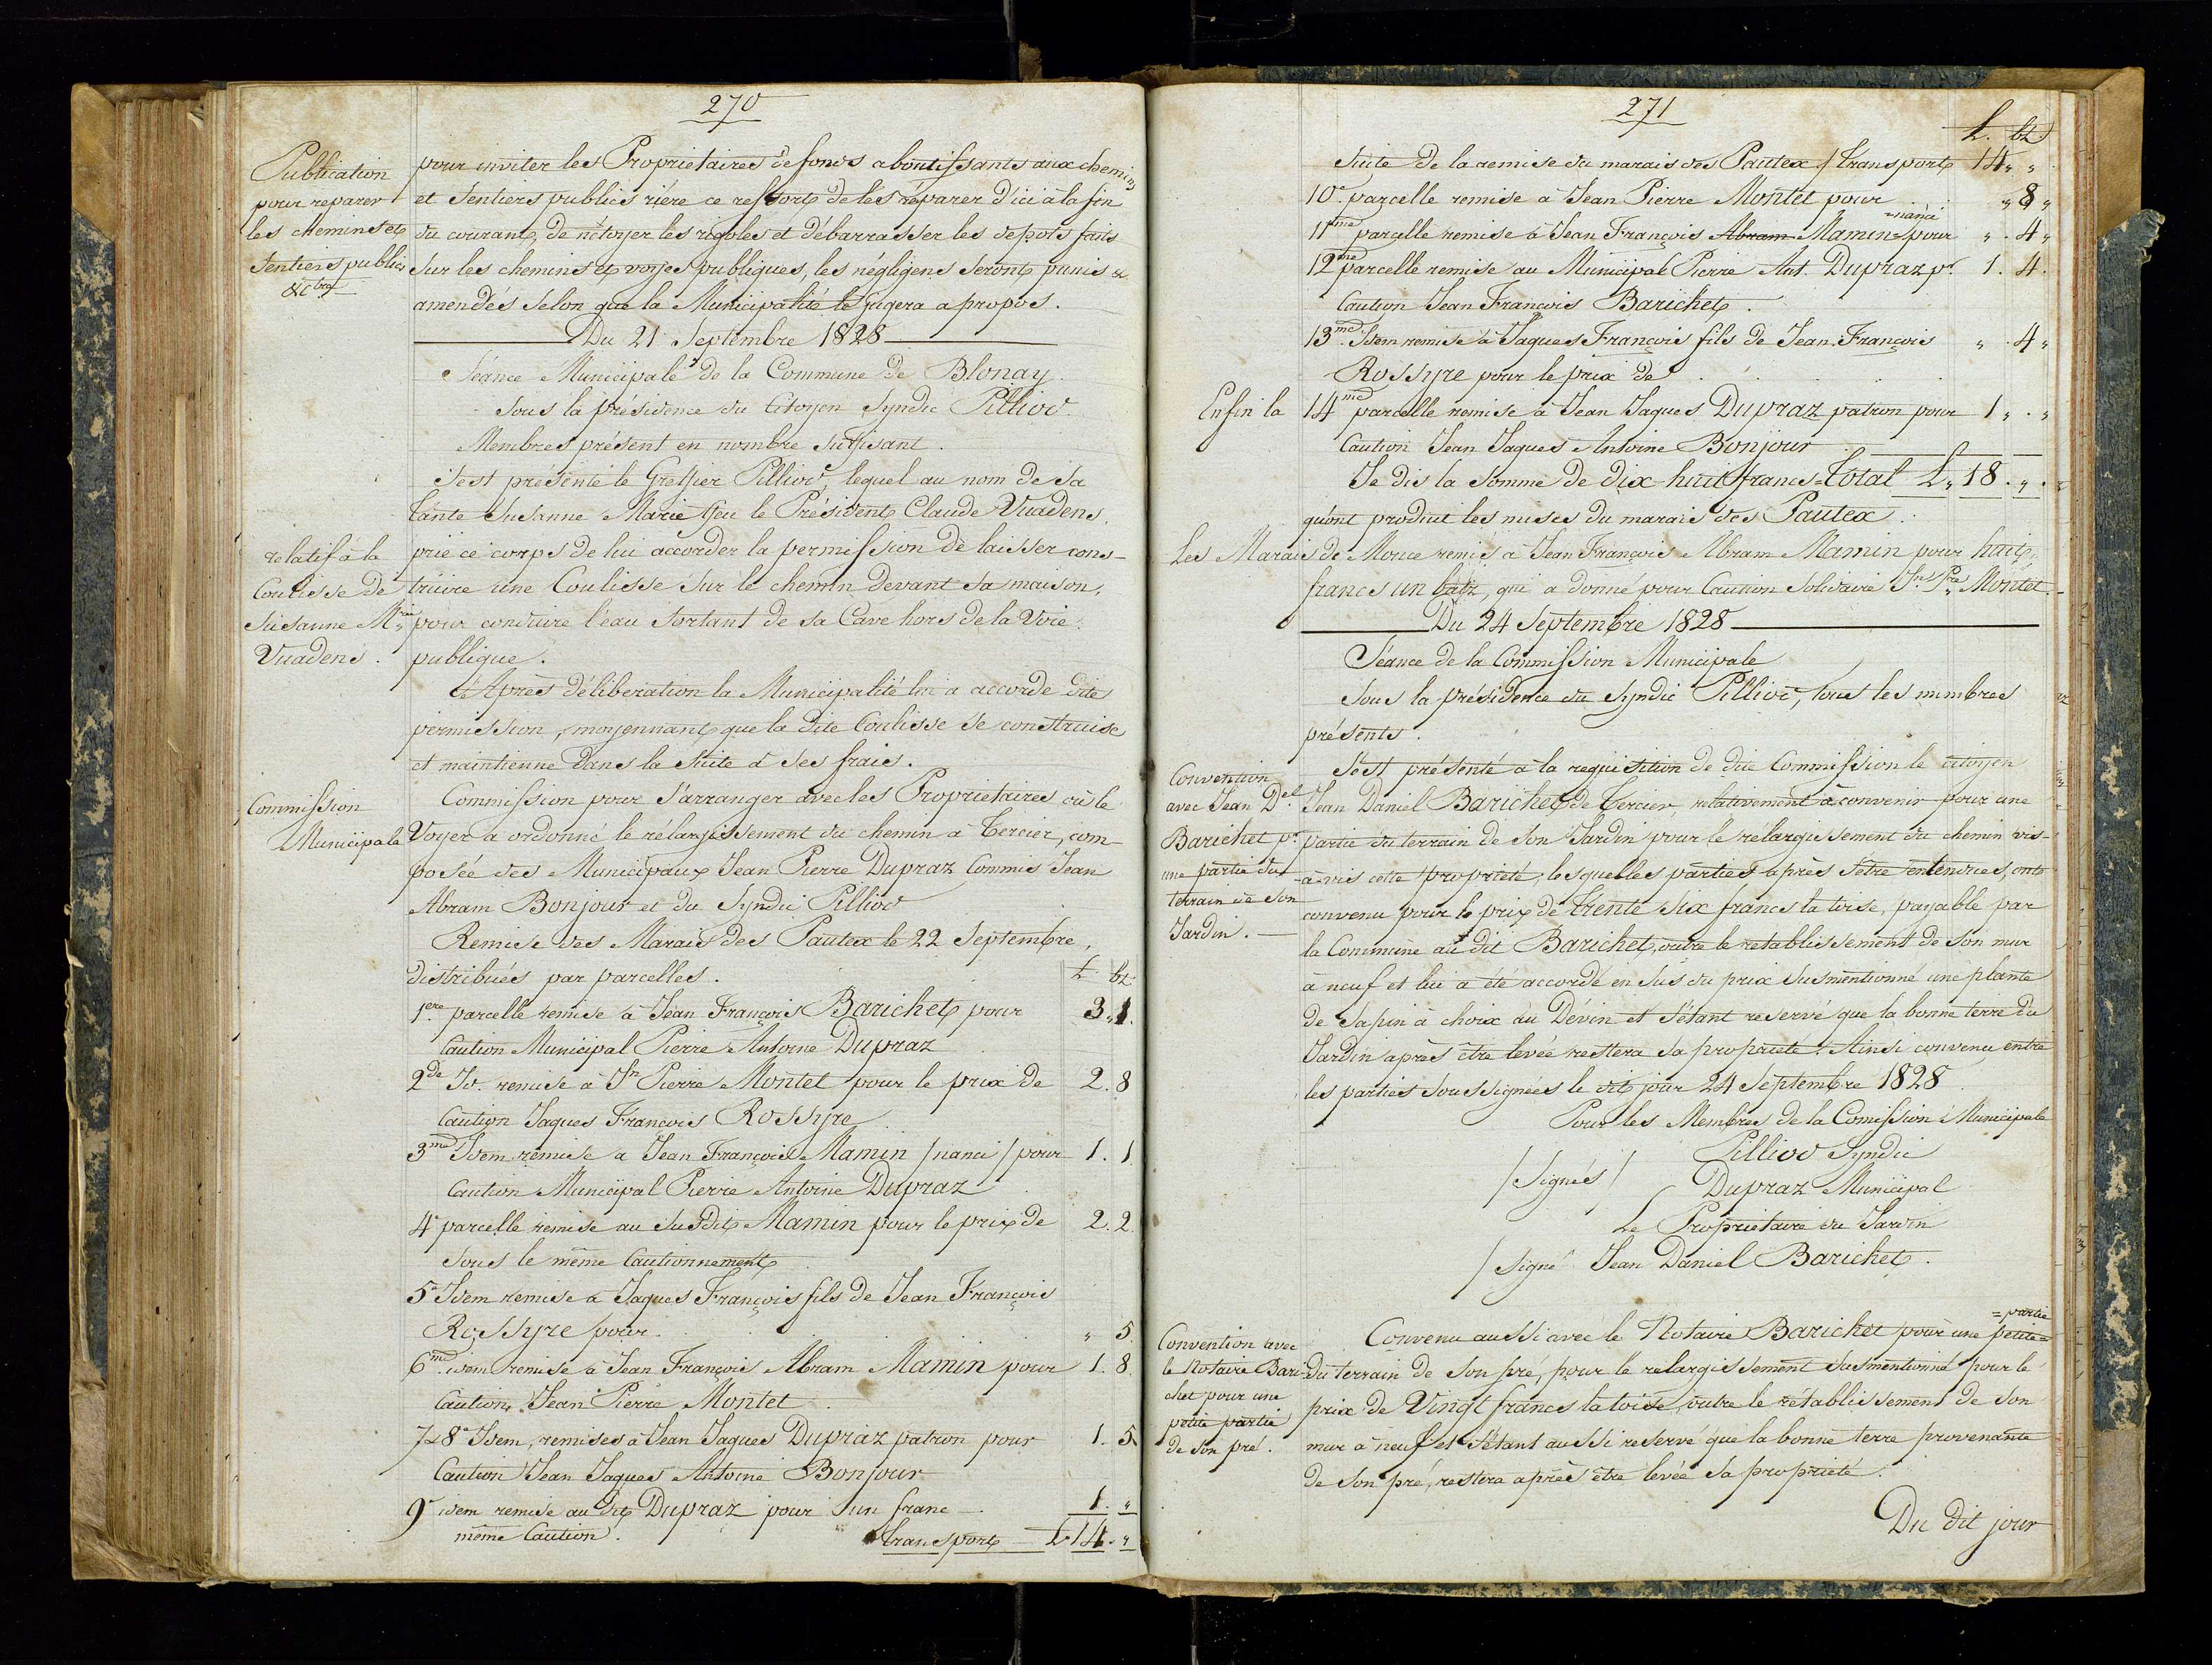 270
Publication
pour reparer
les chemins et
Sentiers publics
&c
pour inviter les Proprietaires de fonds aboutissants aux chemins
et Sentiers publics rière ce ressort de les réparer d'ici à la fin
du courant, de nétoyer les rigoles et débarrasser les depots faits
Sur les chemins et voyes publiques, les négligens seront punis &
amendés selon que la Municipalité le jugera apropos.
Du 21 Septembre 1828
Séance Municipale de la Commune de Blonay
sous la présidence du Citoyen Syndic Pilliod
Membres présent en nombre suffisant.
S'est présenté le Greffier Pilliod, lequel au nom de sa
tante Susanne Marie feu le Président Claude Vuadens,
relatif à la
Coulisse de
Susanne Mrie
Vuadens.
prie ce corps de lui accorder la permission de laisser cons-
truire une Coulisse sur le chemin devant sa maison,
pour conduire l'eau sortant de sa Cave hors de la Voie
publique.
Après déliberation la Municipalité lui a accordé dite
permission, moyennant que la dite Coulisse se construise
et maintienne dans la suite à ses frais.
Commission
Municipale
Commission pour s'arranger avec les Proprietaires où le
Voyer a ordonné le rélargissement du chemin à Tercier, com-
posée des Municipaux Jean Pierre Dupraz Commis Jean
Abram Bonjour et du Syndic Pilliod
Remise des Marais des Pautex le 22 Septembre,
distribués par parcelles. L. bz.
1ere parcelle remise à Jean François Barichet pour 3. 1.
Caution Municipal Pierre Antoine Dupraz
2de Id. remise à Jn Pierre Montet pour le prix de 2. 8
Caution Jaques François Rossyre
3me Idem remise a Jean François Mamin /nanci/ pour 1. 1
Caution Municipal Pierre Antoine Dupraz
4e parcelle remise au susdit Mamin pour le prix de 2. 2.
sous le même Cautionnement
5e Idem remise à Jaques François fils de Jean François
Rossyre pour . . . " 5.
6me idem remise à Jean François Abram Mamin pour 1. 8.
Caution, Jean Pierre Montet
7 & 8e Idem, remises à Jean Jaques Dupraz patron pour 1. 5.
Caution Jean Jaques Antoine Bonjour
9e idem remise au dit Dupraz pour un franc 1. "
même Caution.
transport L 14. "
271
L. bz.
Suite de la remise du marais des Pautex / transport 14 " "
10e parcelle remise à Jean Pierre Montet pour " 8 "
=nanci
11me parcelle remise à Jean François Abram Mamin= pour " . 4 "
12me parcelle remise au Municipal Pierre Ant. Dupraz pr. 1. 4.
Caution Jean François Barichet.
13me Idem remise à Jaques François fils de Jean François " . 4 "
Rossyre pour le prix de
Enfin la 14me parcelle remise à Jean Jaques Dupraz patron pour 1 " . "
Caution Jean Jaques Antoine Bonjour
Je dis la somme de dix-huit francs = Total L. 18. " .
qu'ont produit les mises du marais des Pautex.
Les Marais de Mouce remis à Jean François Abram Mamin pour huit
francs un batz, qui a donné pour Caution Solidaire Jn Pre Montet.
Du 24 Septembre 1828
Séance de la Commission Municipale
sous la présidence du Syndic Pilliod, tous les membres
présents.
Convention
avec Jean Del
Barichet pr.
une partie du
terrain de son
Jardin.
S'est présenté à la requisition de dite Commission le citoyen
Jean Daniel Barichet de Tercier, relativement à convenir pour une
partie du terrain de son Jardin pour le rélargissement du chemin vis-
à-vis cette propriété, lesquelles parties après s'être entendues, ont
convenu pour le prix de trente six francs la toise, payable par
la Commune au dit Barichet, outre le retablissement de son mur
à neuf et lui a été accordé en sus du prix susmentionné une plante
de sapin à choix au Dévin et s'étant reservé que la bonne terre du
Jardin après être levée restera sa propriete. Ainsi convenu entre
les parties soussignées le dit jour 24 Septembre 1828.
Pour les Membres de la Comission Municipale
/Signés/ Pilliod Syndic
Dupraz Municipal
Le Proprietaire du Jardin
/Signé Jean Daniel Barichet.
Convention avec
le Notaire Bari-
chet pour une
petite partie
de son pré.
=partie
Convenu aussi avec le Notaire Barichet pour une petite=
du terrain de son pré, pour le relargissement susmentionné pour le
prix de Vingt francs la toise, outre le rétablissement de son
mur à neuf et s'étant aussi reservé que la bonne terre provenante
de son pré, restera après être levée sa propriété.
Du dit jour